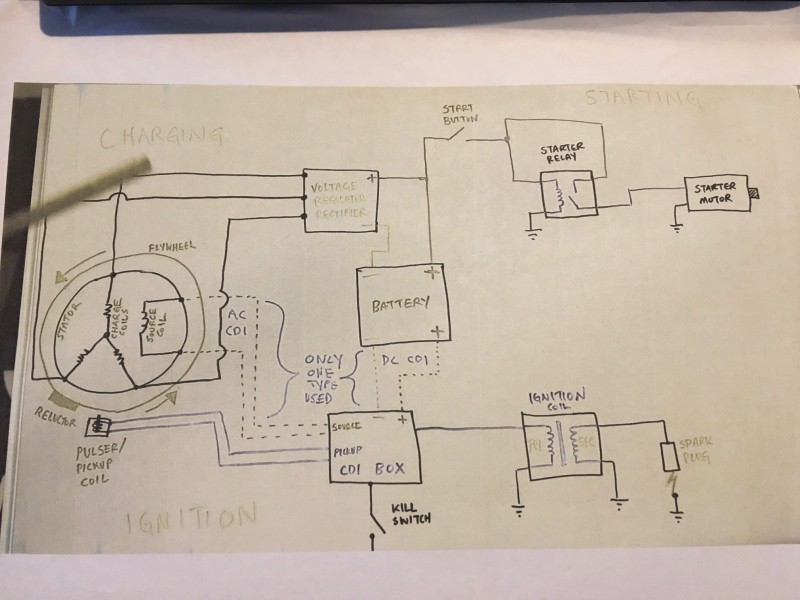 STARTING
CHARGING
START
BUTTON
STARTER
RELAY
STARTER
MOTOR
VOLTAGE
REGULATOR
RECTIFIER
+
−
FLYWHEEL
STATOR
CHARGE
COILS
SOURCE
COIL
− +
BATTERY
+
AC
CDI
ONLY
ONE
TYPE
USED
DC CDI
RELUCTOR
PULSER/
PICKUP
COIL
− +
SOURCE
PICKUP
CDI BOX
IGNITION
COIL
PRI SEC
SPARK
PLUG
KILL
SWITCH
IGNITION